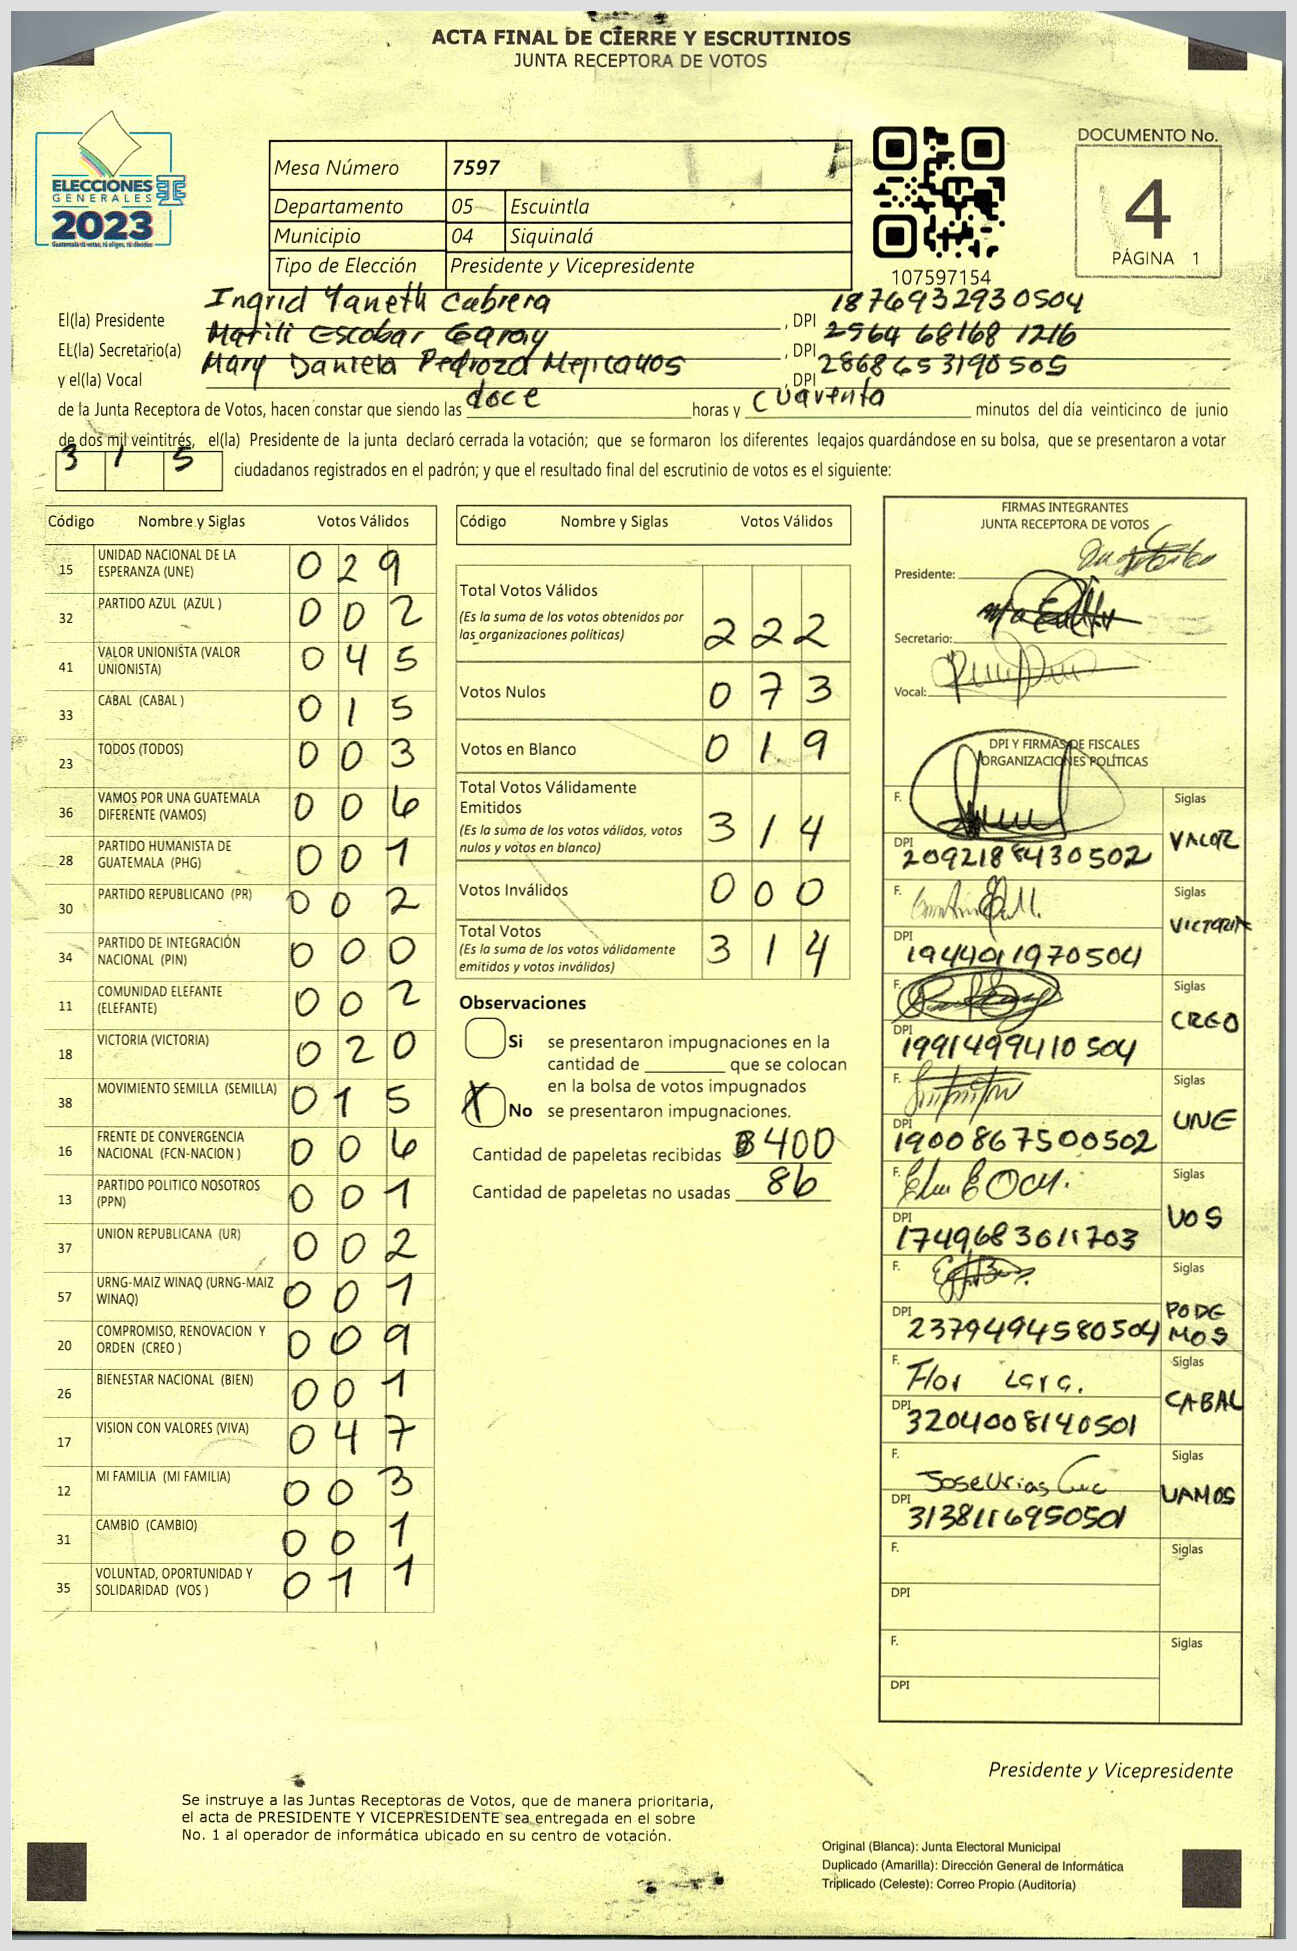 ACTA FINAL DE CIERRE Y ESCRUTINIOS
JUNTA RECEPTORA DE VOTOS
ELECCIONES
GENERALES
2023
Guatemala tú votas, tú eliges, tú decides
Mesa Número 7597
Departamento 05 Escuintla
Municipio 04 Siquinalá
Tipo de Elección Presidente y Vicepresidente
107597154
DOCUMENTO No.
4
PÁGINA 1
El(la) Presidente Ingrid Yaneth Cabrera, DPI 1876932930504
EL(la) Secretario(a) Marili Escobar Garay, DPI 2564 68168 1216
y el(la) Vocal Mary Daniela Pedroza Mejicanos, DPI 2868653190505
de la Junta Receptora de Votos, hacen constar que siendo las doce horas y cuarenta minutos del día veinticinco de junio
de dos mil veintitrés, el(la) Presidente de la junta declaró cerrada la votación; que se formaron los diferentes legajos guardándose en su bolsa, que se presentaron a votar
3 1 5 ciudadanos registrados en el padrón; y que el resultado final del escrutinio de votos es el siguiente:
Código Nombre y Siglas Votos Válidos
15 UNIDAD NACIONAL DE LA ESPERANZA (UNE) 0 2 9
32 PARTIDO AZUL (AZUL ) 0 0 2
41 VALOR UNIONISTA (VALOR UNIONISTA) 0 4 5
33 CABAL (CABAL ) 0 1 5
23 TODOS (TODOS) 0 0 3
36 VAMOS POR UNA GUATEMALA DIFERENTE (VAMOS) 0 0 6
28 PARTIDO HUMANISTA DE GUATEMALA (PHG) 0 0 1
30 PARTIDO REPUBLICANO (PR) 0 0 2
34 PARTIDO DE INTEGRACIÓN NACIONAL (PIN) 0 0 0
11 COMUNIDAD ELEFANTE (ELEFANTE) 0 0 2
18 VICTORIA (VICTORIA) 0 2 0
38 MOVIMIENTO SEMILLA (SEMILLA) 0 1 5
16 FRENTE DE CONVERGENCIA NACIONAL (FCN-NACION ) 0 0 6
13 PARTIDO POLITICO NOSOTROS (PPN) 0 0 1
37 UNION REPUBLICANA (UR) 0 0 2
57 URNG-MAIZ WINAQ (URNG-MAIZ WINAQ) 0 0 1
20 COMPROMISO, RENOVACION Y ORDEN (CREO ) 0 0 9
26 BIENESTAR NACIONAL (BIEN) 0 0 1
17 VISION CON VALORES (VIVA) 0 4 7
12 MI FAMILIA (MI FAMILIA) 0 0 3
31 CAMBIO (CAMBIO) 0 0 1
35 VOLUNTAD, OPORTUNIDAD Y SOLIDARIDAD (VOS ) 0 1 1
Código Nombre y Siglas Votos Válidos
Total Votos Válidos 2 2 2
(Es la suma de los votos obtenidos por las organizaciones políticas)
Votos Nulos 0 7 3
Votos en Blanco 0 1 9
Total Votos Válidamente Emitidos 3 1 4
(Es la suma de los votos válidos, votos nulos y votos en blanco)
Votos Inválidos 0 0 0
Total Votos 3 1 4
(Es la suma de los votos válidamente emitidos y votos inválidos)
Observaciones
Si se presentaron impugnaciones en la
cantidad de ________ que se colocan
en la bolsa de votos impugnados
X No se presentaron impugnaciones.
Cantidad de papeletas recibidas 400
Cantidad de papeletas no usadas 86
FIRMAS INTEGRANTES
JUNTA RECEPTORA DE VOTOS
Presidente:
Secretario:
Vocal:
DPI Y FIRMAS DE FISCALES
ORGANIZACIONES POLÍTICAS
F. Siglas VALOR
DPI 2092188430502
F. Siglas VICTORIA
DPI 1944011970504
F. Siglas CREO
DPI 1991499410504
F. Siglas UNE
DPI 1900867500502
F. Siglas VOS
DPI 1749683011703
F. Siglas PODEMOS
DPI 2379494580504
F. Flor Lara. Siglas CABAL
DPI 3204008140501
F. Jose Urias Siglas VAMOS
DPI 3138116950501
F. Siglas
DPI
F. Siglas
DPI
Presidente y Vicepresidente
Se instruye a las Juntas Receptoras de Votos, que de manera prioritaria,
el acta de PRESIDENTE Y VICEPRESIDENTE sea entregada en el sobre
No. 1 al operador de informática ubicado en su centro de votación.
Original (Blanca): Junta Electoral Municipal
Duplicado (Amarilla): Dirección General de Informática
Triplicado (Celeste): Correo Propio (Auditoría)